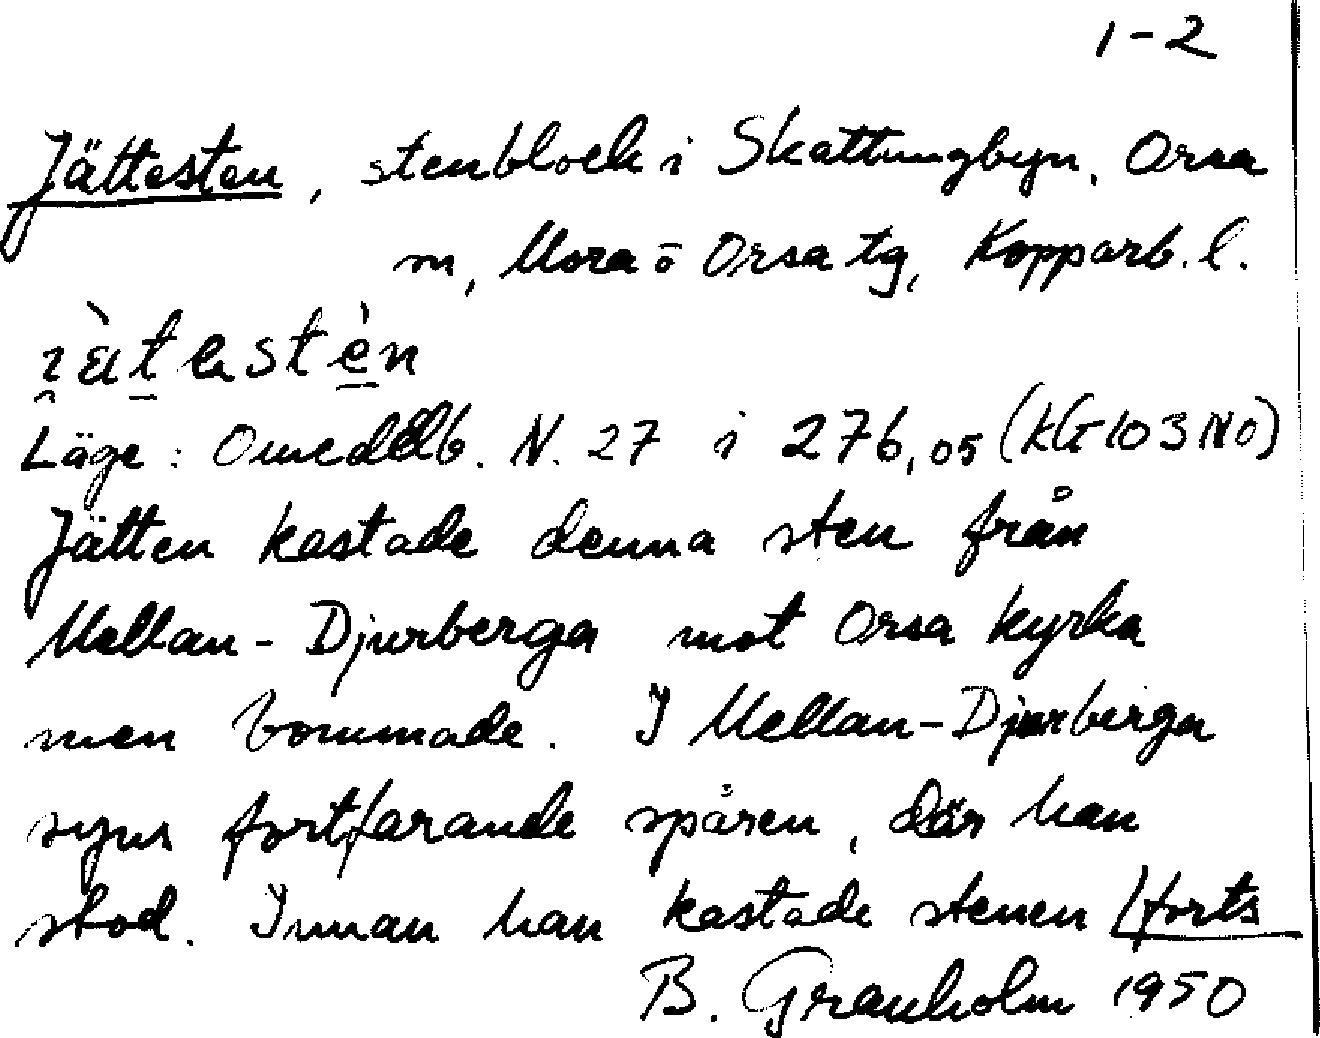 1-2
Jättesten, stenblock i Skattungbyn, Orsa
sn, Mora o Orsa tg, Kopparb. l.
Läge: Omeddelb. N. 27 i 276,05 (KG 103 NO)
Jätten kastade denna sten från
Mellan-Djurberga mot Orsa kyrka
men bommade. I Mellan-Djurberga
syns fortfarande spåren, där han
stod. Innan han kastade stenen /forts
B. Granholm 1950